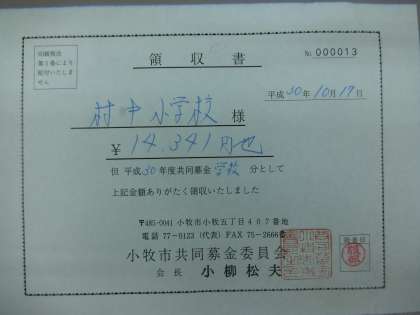 領収書
№ 000013
平成30年10月17日
村中小学校 様
¥ 14,341円也
但 平成30年度共同募金 学校 分として
上記金額ありがたく領収いたしました
〒485-0041 小牧市小牧五丁目407番地
電話 77-0123 (代表) FAX 75-2666番
小牧市共同募金委員会
会長 小柳松夫